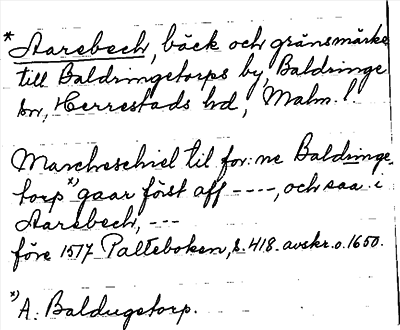 * Aarebech, bäck och gränsmärke
till Baldringetorps by, Baldringe
sn, Herrestads hd, Malm. l.
Marcheschiel til for:ne Baldringe-
torp *) gaar först aff ----, och saa i
Aarebech, ---
före 1517 Palteboken, s. 418. avskr. o. 1650.
*) A: Baldugetorp.